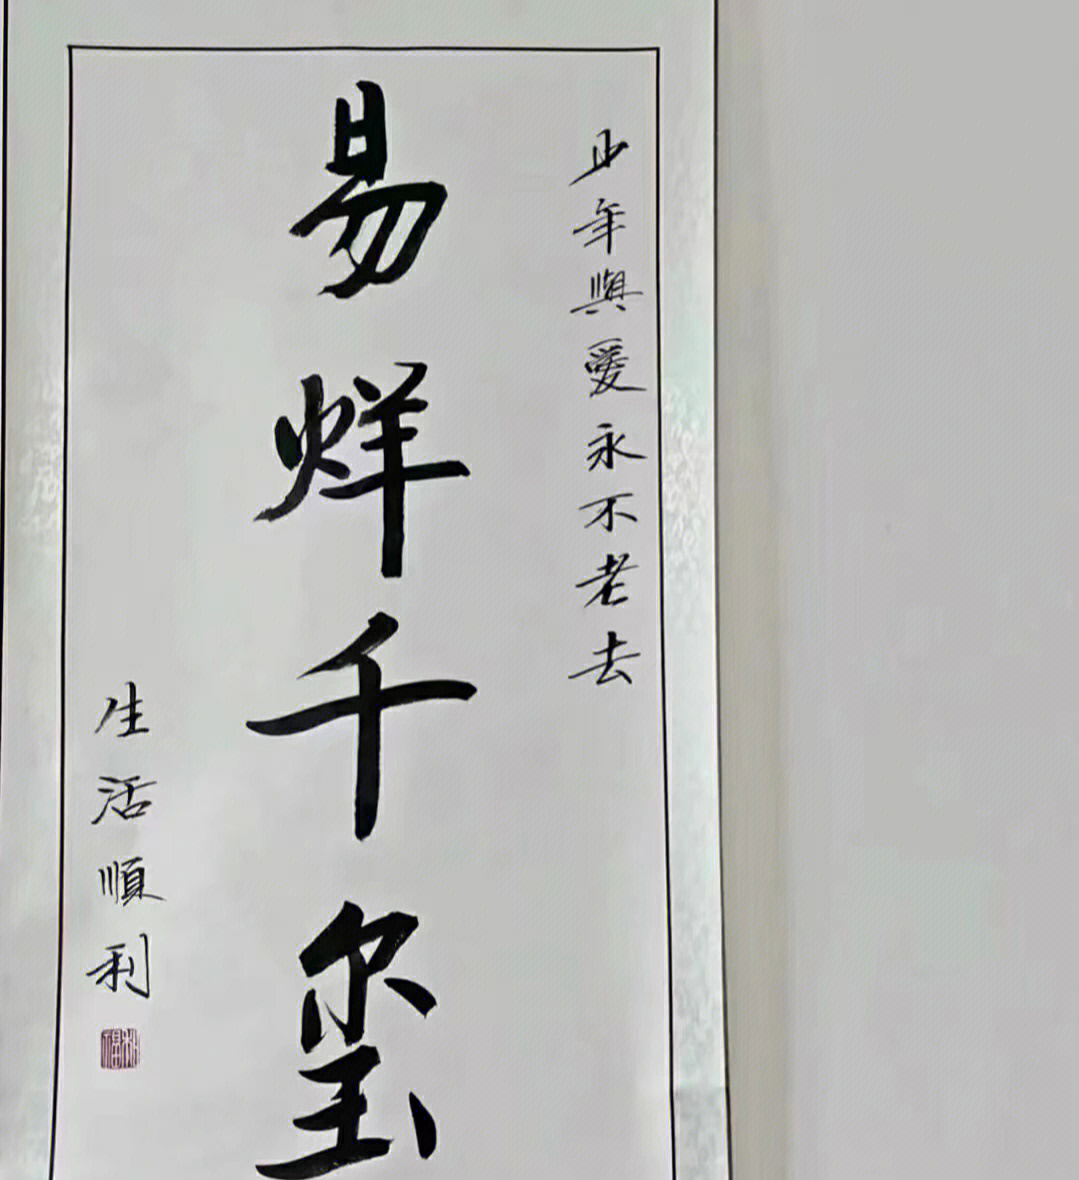 少年與愛永不老去
易烊千玺
生活順利